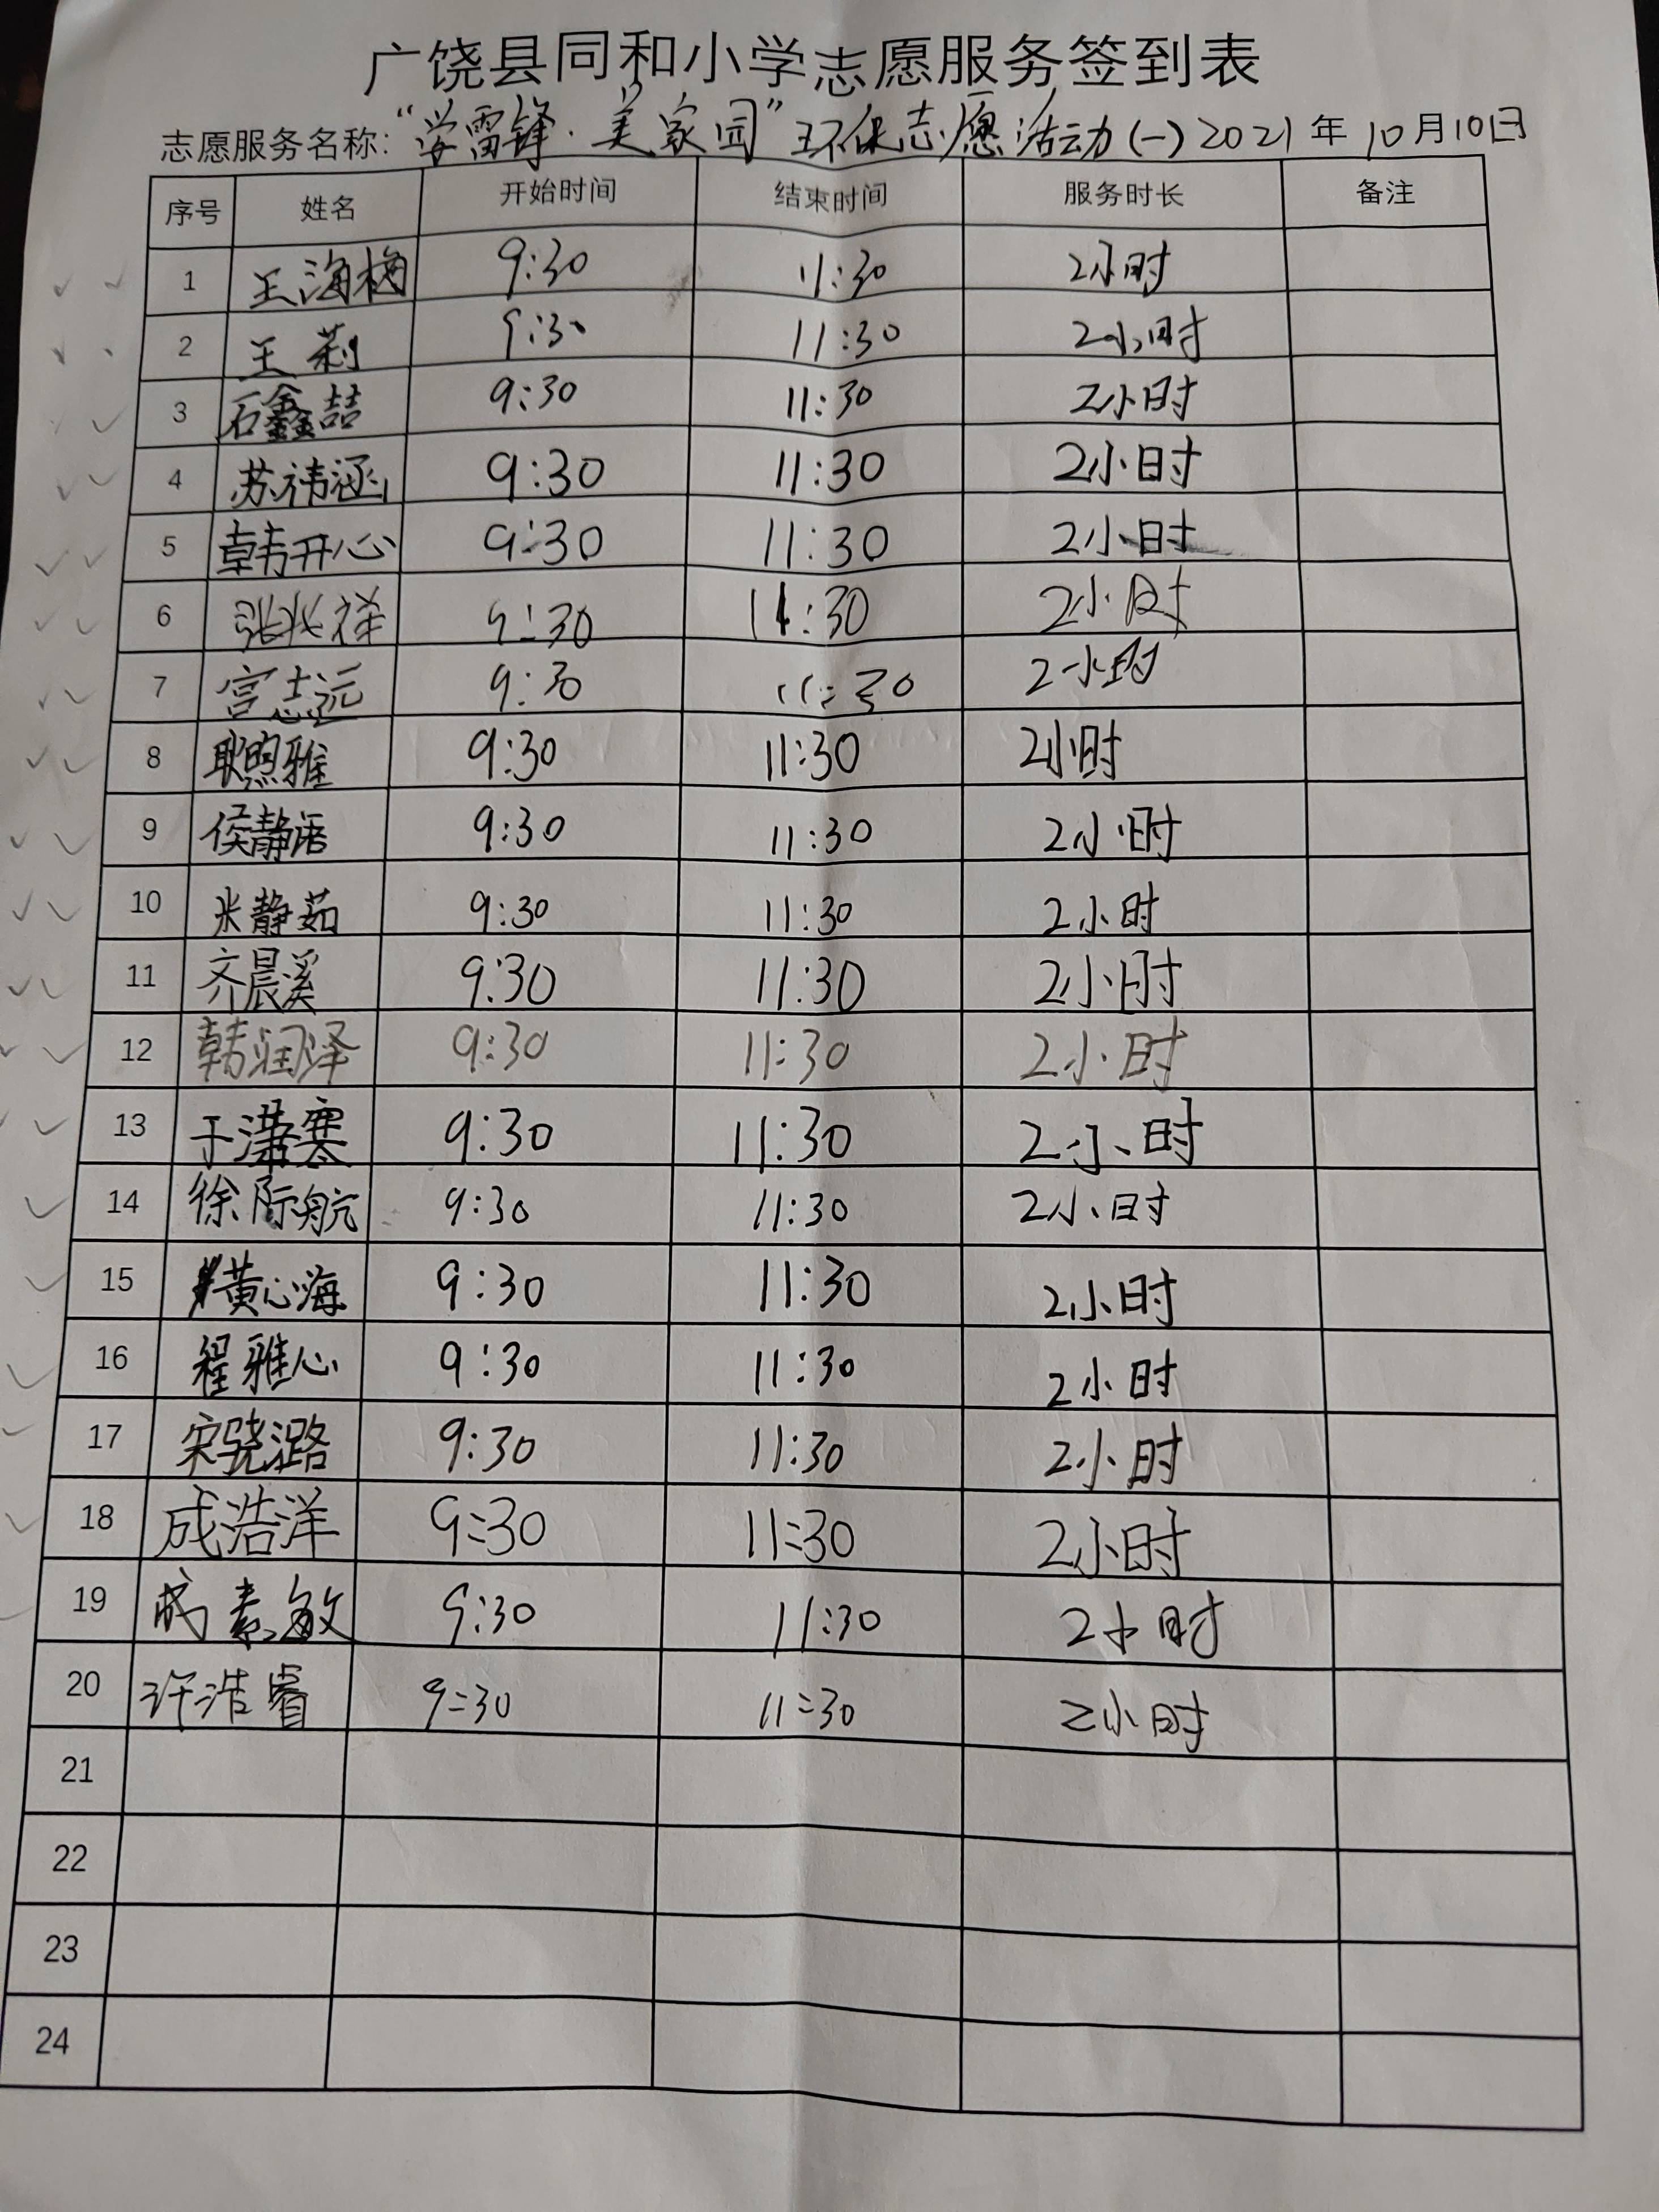 广饶县同和小学志愿服务签到表
志愿服务名称:“学雷锋·美家园”环保志愿活动(一) 2021年10月10日
序号 姓名 开始时间 结束时间 服务时长 备注
1 王海梅 9:30 11:30 2小时
2 王莉 9:30 11:30 2小时
3 石鑫喆 9:30 11:30 2小时
4 苏祎涵 9:30 11:30 2小时
5 韩开心 9:30 11:30 2小时
6 张兆祥 9:30 11:30 2小时
7 宫志远 9:30 11:30 2小时
8 耿煦雅 9:30 11:30 2小时
9 侯静语 9:30 11:30 2小时
10 米静茹 9:30 11:30 2小时
11 齐晨溪 9:30 11:30 2小时
12 韩润泽 9:30 11:30 2小时
13 于潇寒 9:30 11:30 2小时
14 徐际航 9:30 11:30 2小时
15 黄心海 9:30 11:30 2小时
16 程雅心 9:30 11:30 2小时
17 宋骁潞 9:30 11:30 2小时
18 成浩洋 9:30 11:30 2小时
19 成素敏 9:30 11:30 2小时
20 许浩睿 9:30 11:30 2小时
21
22
23
24